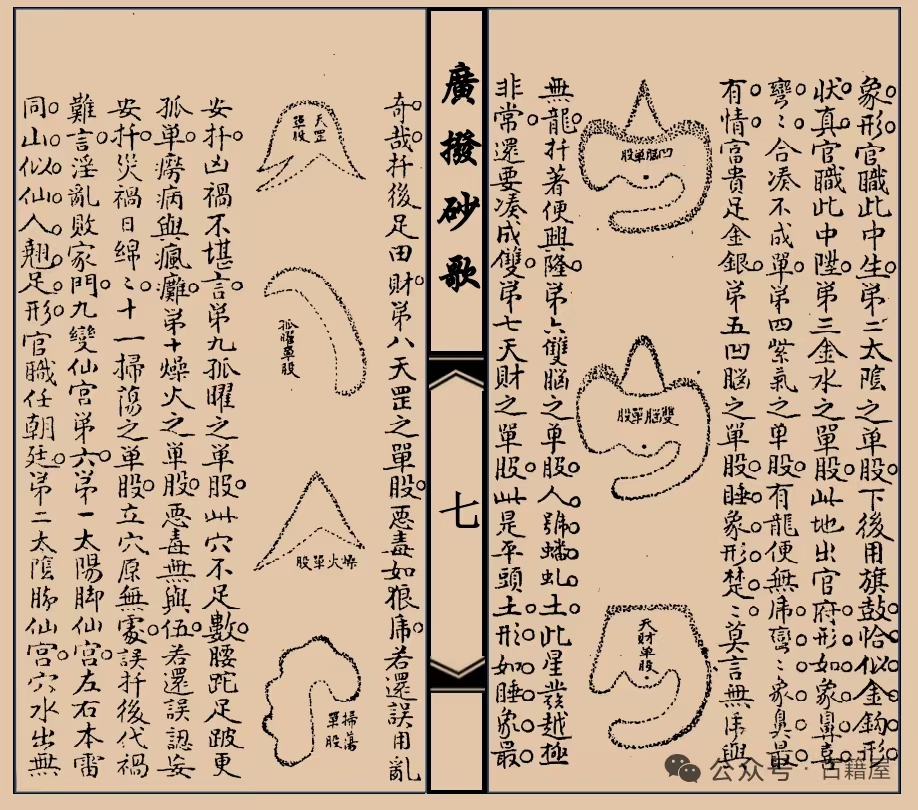 象形官職此中生第二太陰之单股下後用旗鼓恰似金鈎形
狀真官職此中陞第三金水之單股此地出官府形如象鼻喜
彎〻合凑不成單第四紫氣之单股有龍便無虎彎〻象鼻最
有情富貴足金銀第五凹腦之單股睡象形楚〻莫言無虎與
凹腦單股
雙腦單股
天財单股
無龍扦著便興隆第六雙腦之单股人號蟠虬土此星發越極
非常還要凑成雙第七天財之單股此是平頭土形如睡象最
廣撥砂歌
七
奇哉扦後足田財第八天罡之單股惡毒如狼虎若還誤用亂
天罡單股
孤曜單股
燥火單股
掃蕩單股
安扦凶禍不堪言第九孤曜之单股此穴不足數腰跎足跛更
孤单癆病與瘋癱第十燥火之单股惡毒無與伍若還誤認妄
安扦災禍日綿〻十一掃蕩之单股立穴原無處誤扦後代禍
難言淫亂敗家門九變仙宫第六第一太陽脚仙宫左右本雷
同山似仙人翹足形官職任朝廷第二太陰脚仙宫穴水出無
公众号·古籍屋